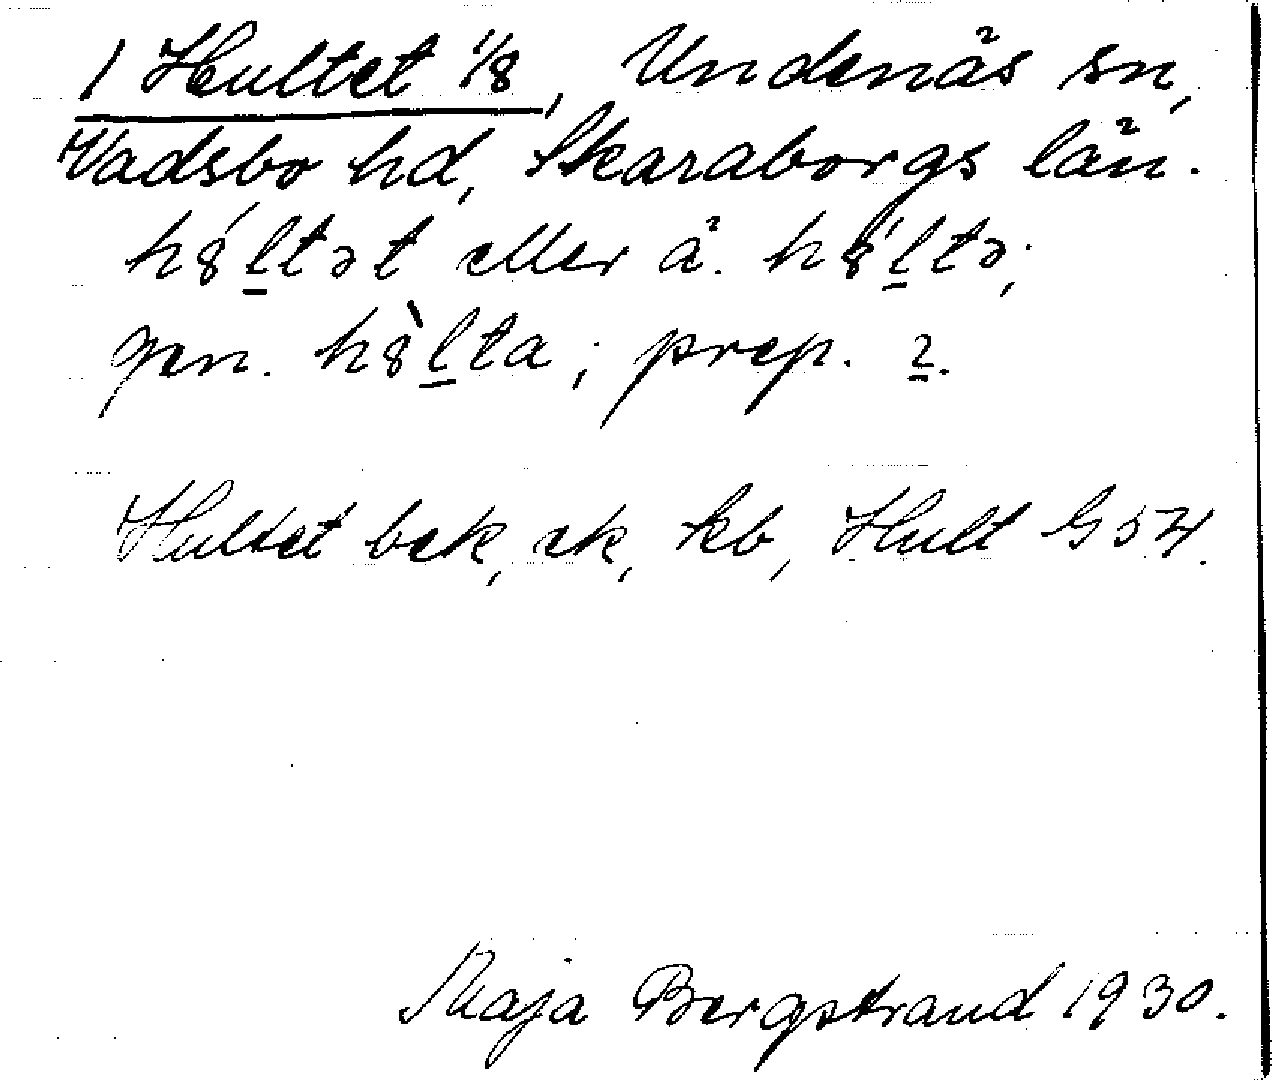 1 Hultet 1/8, Undenäs sn,
Vadsbo hd, Skaraborgs län.
h8́ltət eller ä. h8́ltə;
gen. h8̀lta; prep. ɩ.
Hultet bek, ek, kb, Hult G 54.
Maja Bergstrand 1930.